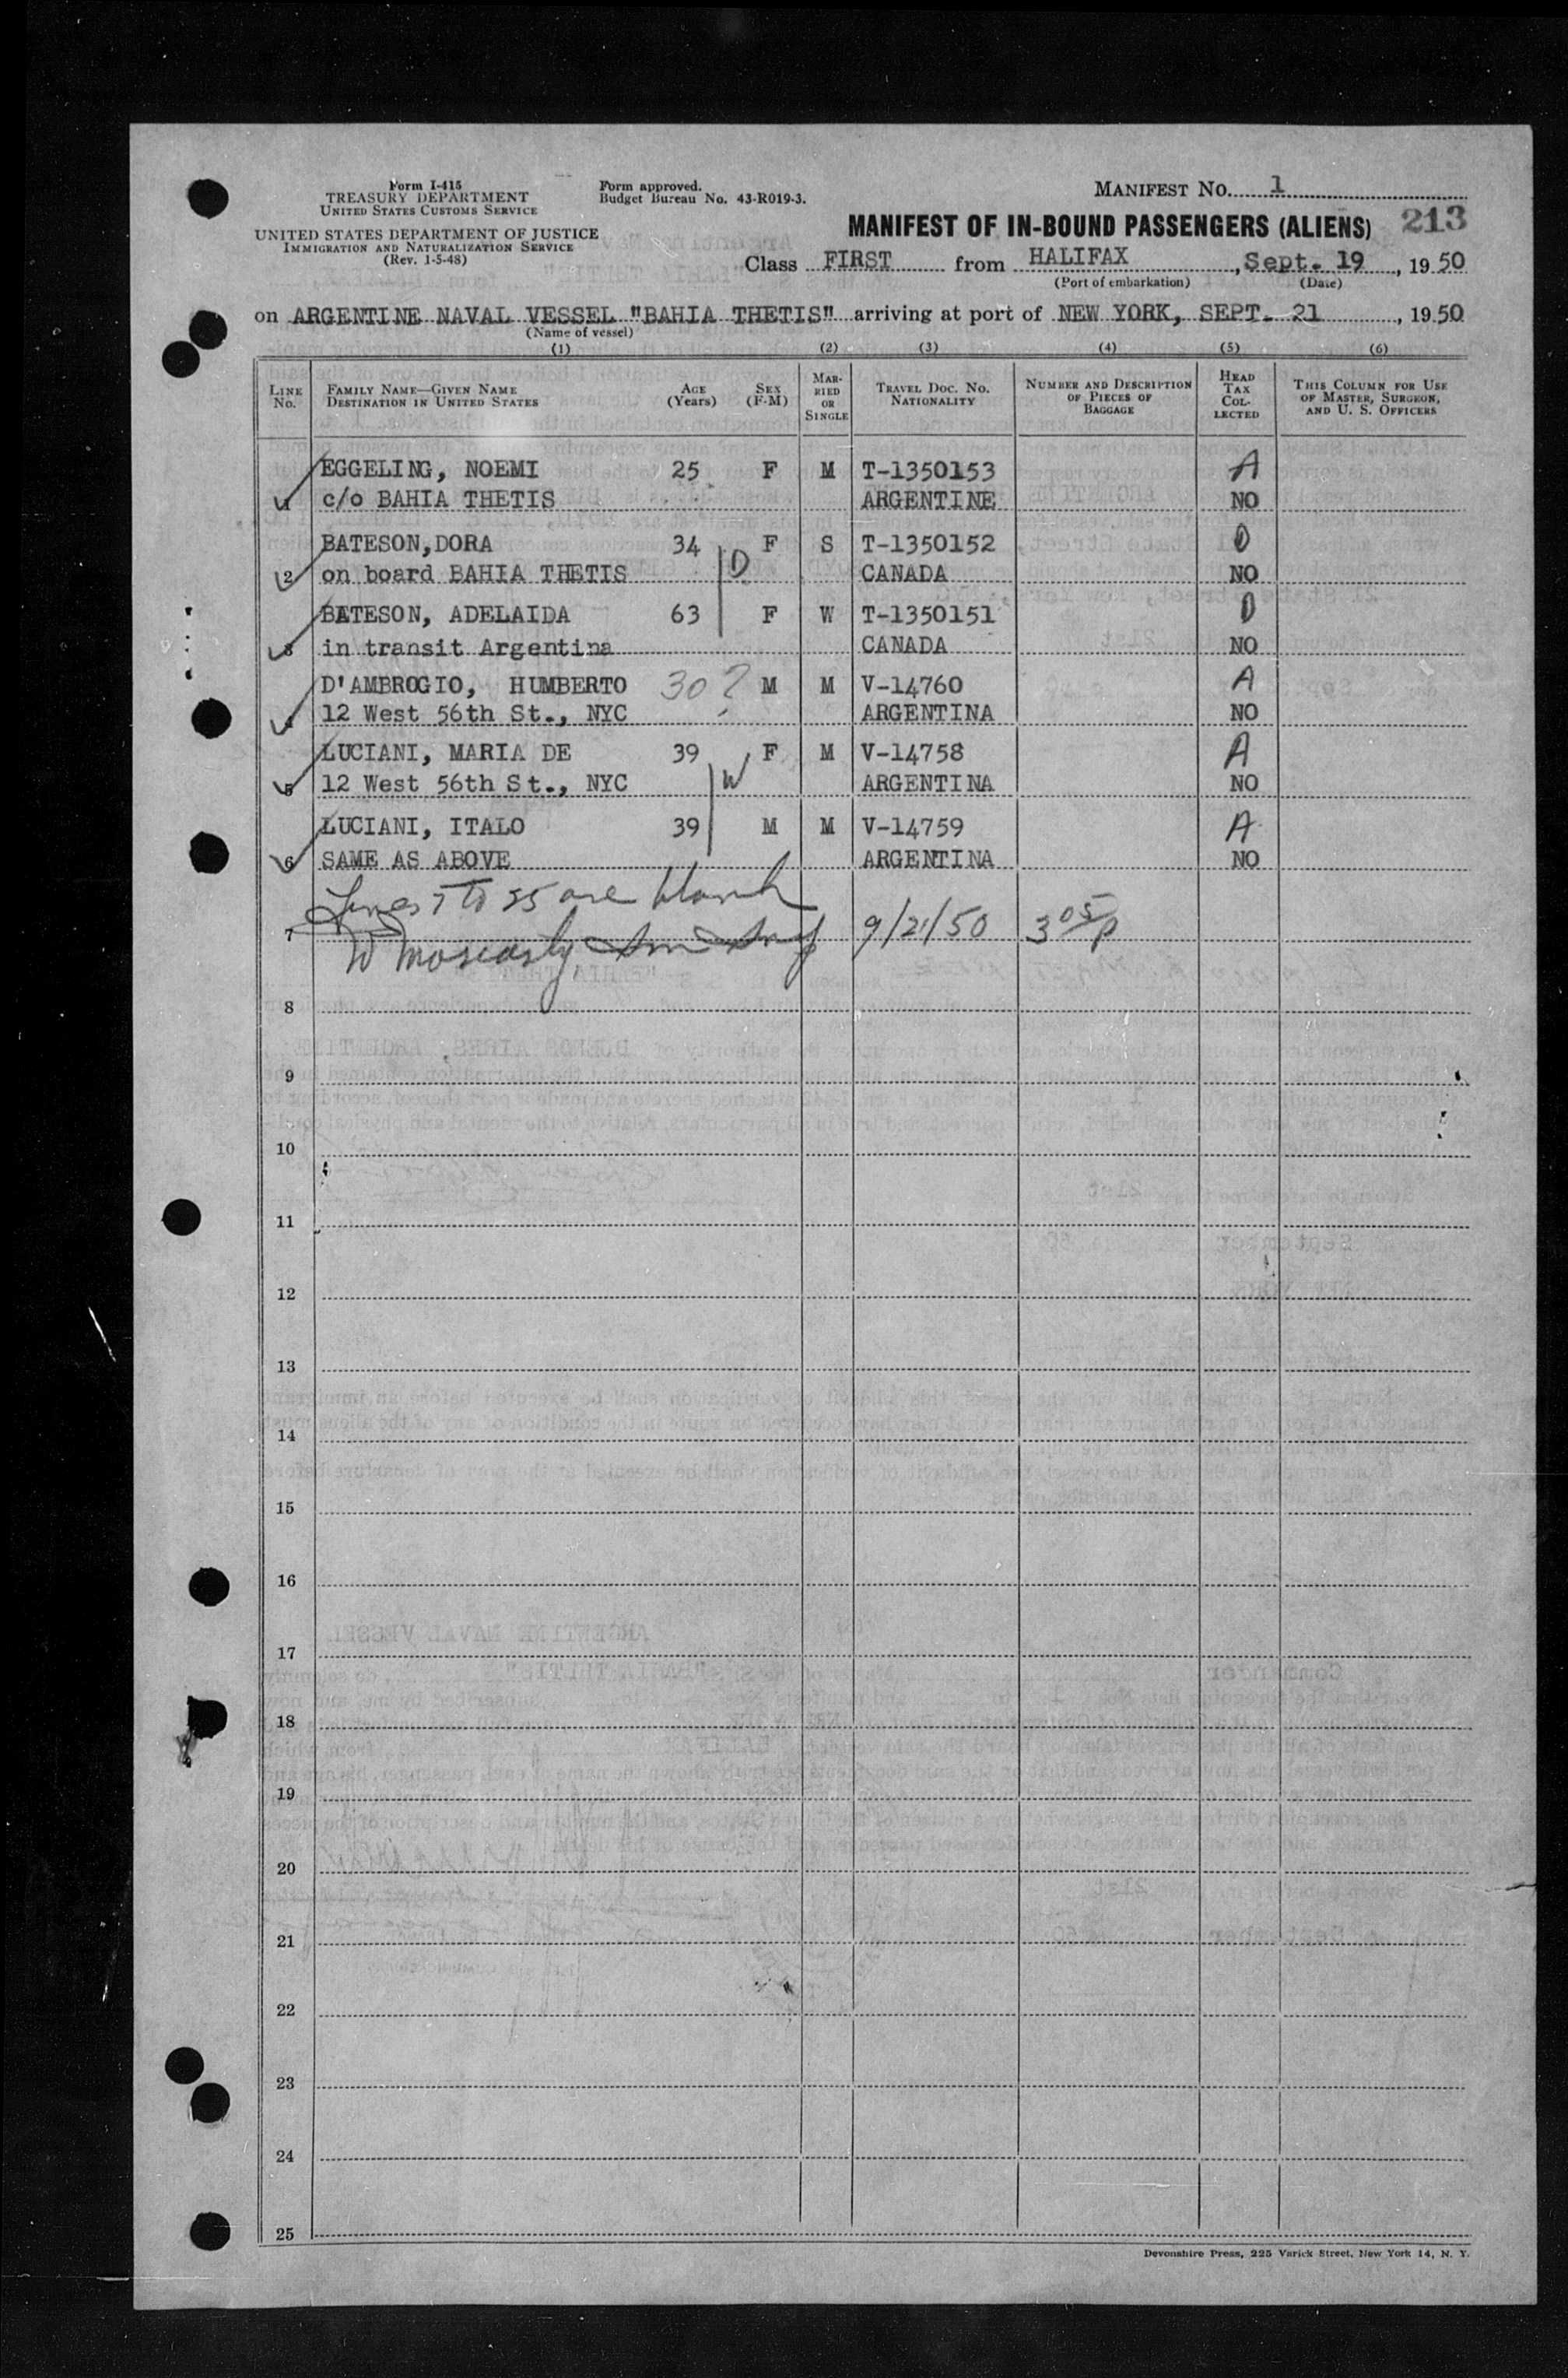 Form I-415
TREASURY DEPARTMENT
UNITED STATES CUSTOMS SERVICE
UNITED STATES DEPARTMENT OF JUSTICE
IMMIGRATION AND NATURALIZATION SERVICE
(Rev. 1-5-48)
Form approved.
Budget Bureau No. 43-R019-3.
MANIFEST NO. 1
MANIFEST OF IN-BOUND PASSENGERS (ALIENS) 213
Class FIRST from HALIFAX, Sept. 19, 1950
(Port of embarkation) (Date)
on ARGENTINE NAVAL VESSEL "BAHIA THETIS" arriving at port of NEW YORK, SEPT. 21, 1950
(Name of vessel)
(1) (2) (3) (4) (5) (6)
LINE No. FAMILY NAME—GIVEN NAME DESTINATION IN UNITED STATES AGE (Years) SEX (F-M) MARRIED OR SINGLE TRAVEL DOC. NO. NATIONALITY NUMBER AND DESCRIPTION OF PIECES OF BAGGAGE HEAD TAX COLLECTED THIS COLUMN FOR USE OF MASTER, SURGEON, AND U. S. OFFICERS
EGGELING, NOEMI 25 F M T-1350153 A
1 c/o BAHIA THETIS ARGENTINE NO
BATESON,DORA 34 F S T-1350152 D
2 on board BAHIA THETIS D CANADA NO
BATESON, ADELAIDA 63 F W T-1350151 D
3 in transit Argentina CANADA NO
D'AMBROGIO, HUMBERTO 30? M M V-14760 A
4 12 West 56th St., NYC ARGENTINA NO
LUCIANI, MARIA DE 39 F M V-14758 A
5 12 West 56th St., NYC W ARGENTINA NO
LUCIANI, ITALO 39 M M V-14759 A
6 SAME AS ABOVE ARGENTINA NO
Lines 7 to 25 are blank
7 9/21/50 3 05 p
8
9
10
11
12
13
14
15
16
17
18
19
20
21
22
23
24
25
Devonshire Press, 225 Varick Street, New York 14, N. Y.